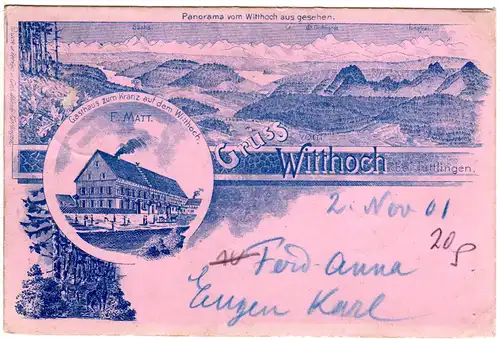 Panorama vom Witthoch aus gesehen.
Gasthaus zum Kranz auf dem Witthoch.
F. MATT.
Gruss vom
Witthoch
bei Tuttlingen.
2. Nov 01
20
Ferd-Anna
Eugen Karl